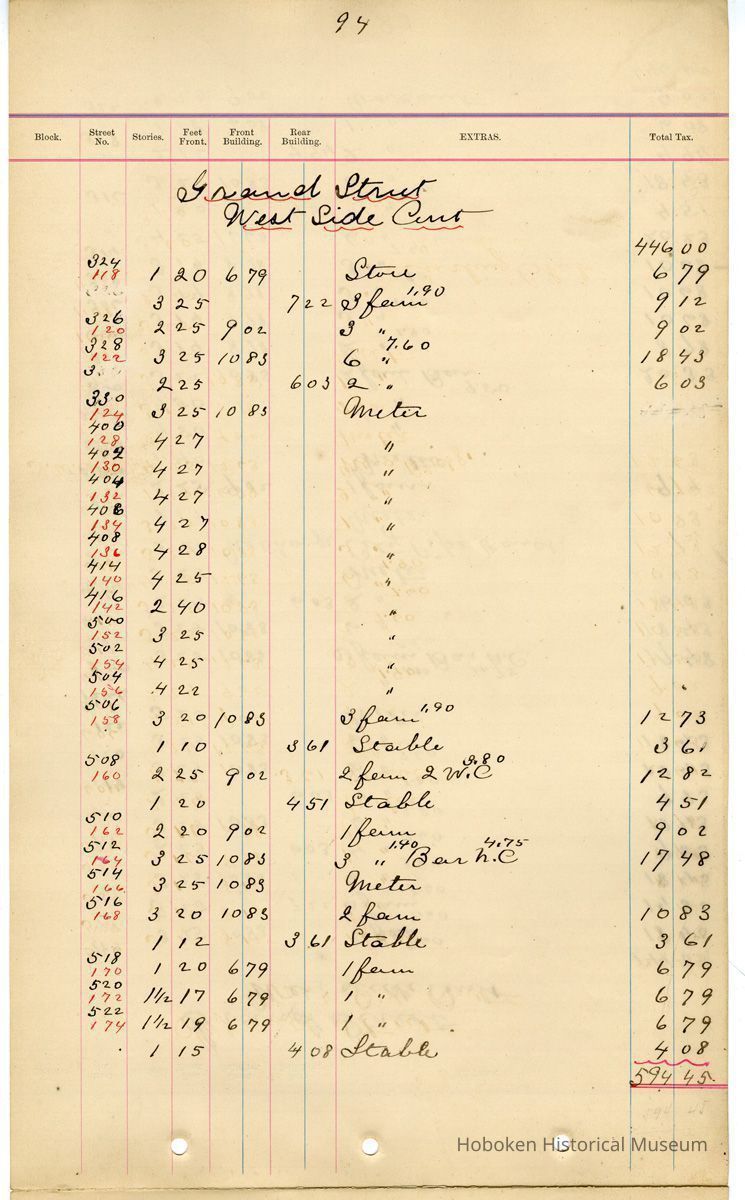 94
Block. Street No. Stories. Feet Front. Front Building. Rear Building. EXTRAS. Total Tax.
Grand Street
West Side Cont
446 00
324
118 1 20 6 79 Store 6 79
3 25 7 22 3 fam 1,90 9 12
326
120 2 25 9 02 3 " 9 02
328
122 3 25 10 83 6 " 7.60 18 43
2 25 6 03 2 " 6 03
330
124 3 25 10 83 Meter
400
128 4 27 "
402
130 4 27 "
404
132 4 27 "
406
134 4 27 "
408
136 4 28 "
414
140 4 25 "
416
142 2 40 "
500
152 3 25 "
502
154 4 25 "
504
156 4 22 "
506
158 3 20 10 83 3 fam 1,90 12 73
1 10 3 61 Stable 3 61
508
160 2 25 9 02 2 fam 2 W.C 3.80 12 82
1 20 4 51 Stable 4 51
510
162 2 20 9 02 1 fam 9 02
512
164 3 25 10 83 3 " 1.90 Bar W.C 4.75 17 48
514
166 3 25 10 83 Meter
516
168 3 20 10 83 2 fam 10 83
1 12 3 61 Stable 3 61
518
170 1 20 6 79 1 fam 6 79
520
172 1 1/2 17 6 79 1 " 6 79
522
174 1 1/2 19 6 79 1 " 6 79
1 15 4 08 Stable 4 08
594 45
Hoboken Historical Museum